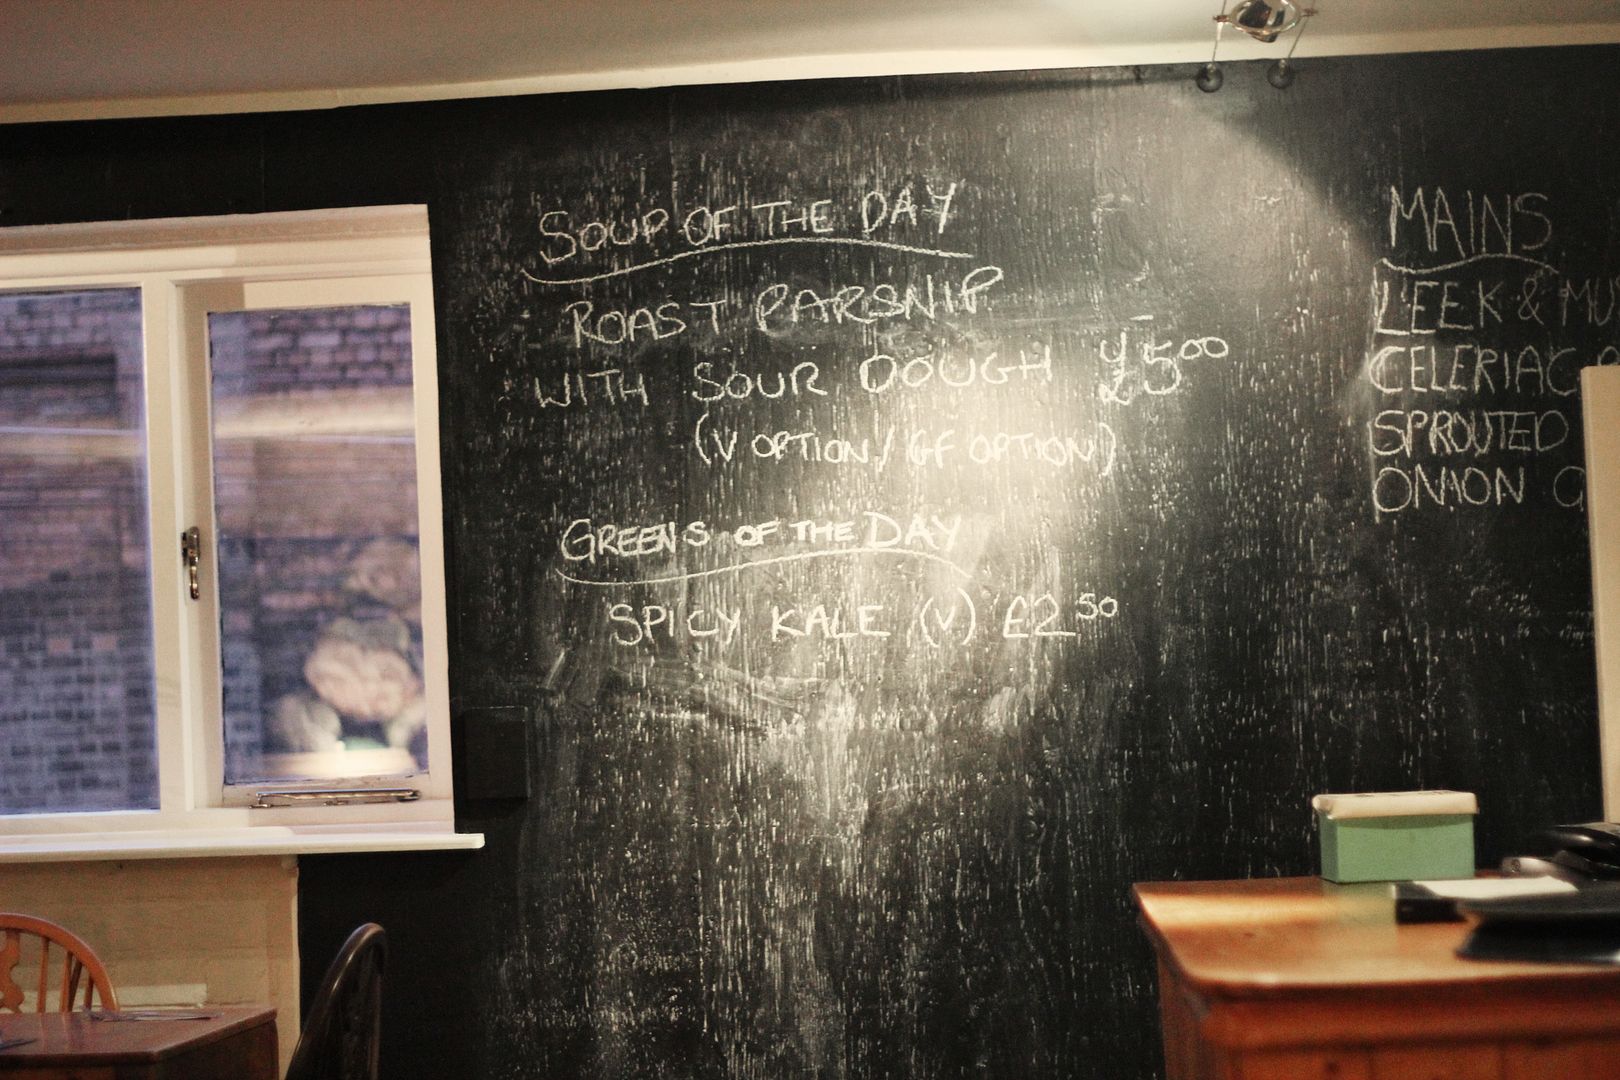 SOUP OF THE DAY
ROAST PARSNIP
WITH SOUR DOUGH £500
(V OPTION / GF OPTION)
GREENS OF THE DAY
SPICY KALE (V) £2 50
MAINS
LEEK & MU
CELERIAC
SPROUTED
ONION G